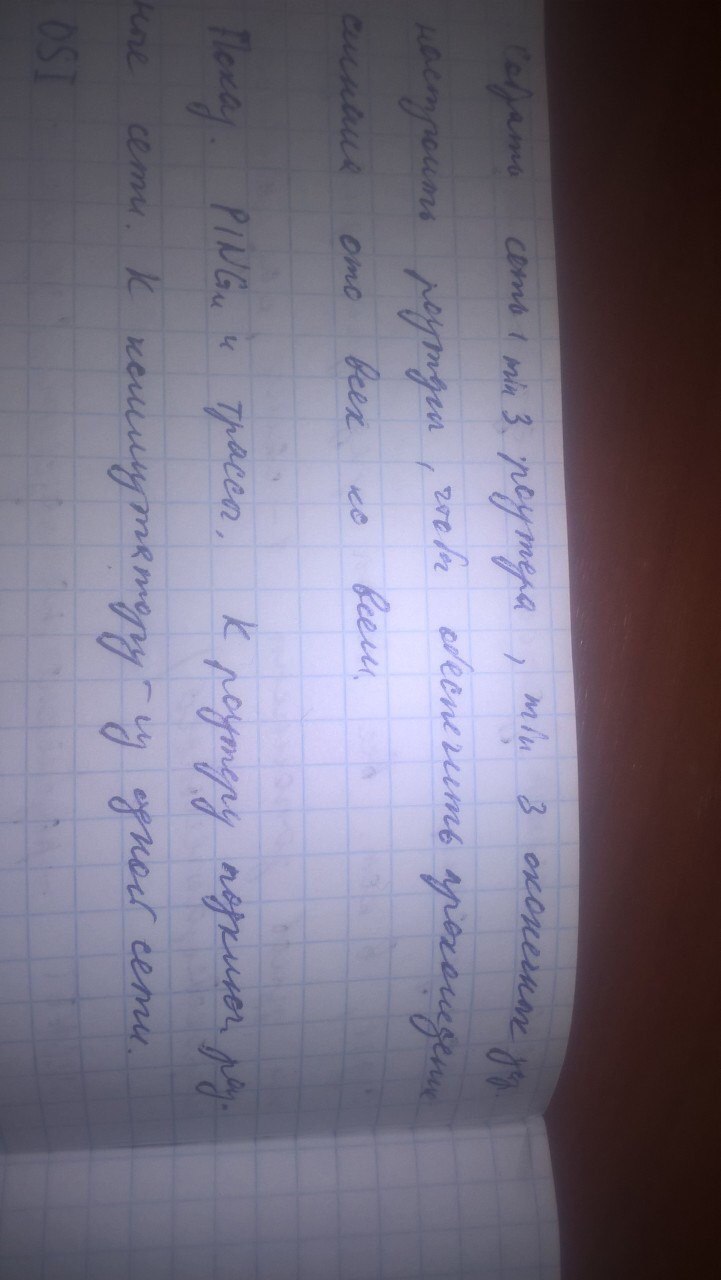 Собрать сеть, min 3 роутера, min 3 оконечных уз.
настроить роутеры, чтобы обеспечить прохождение
сигнала ото всех ко всем.
Показ. PINGи и трассы. К роутеру подключ. раз.
ные сети. К коммутатору - из одной сети.
OSI